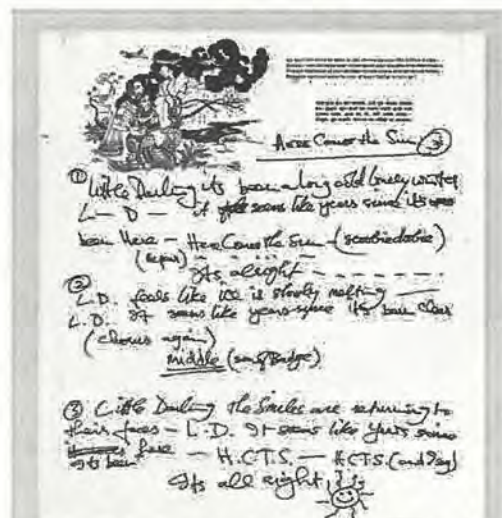 Here Comes the Sun
① Little Darling its been a long cold lonely winter
L — D — it seems like years since its
been Here — Here Comes the Sun — (scoobie doobie)
(repeat)
Its alright — — — — —
② L.D. feels like ice is slowly melting —
L.D. It seems like years since its been clear
(chorus again)
Middle (son of Badge)
③ Little Darling the Smiles are returning to
their faces — L.D. It seems like years since
its been here — H.C.T.S. — H.C.T.S. (and 
Its all right